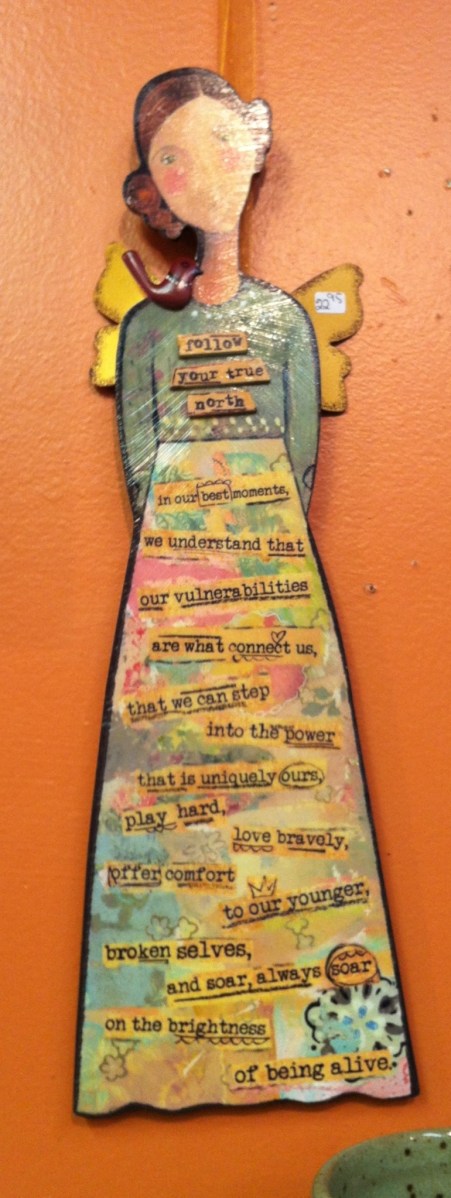 22 95
follow
your true
north
in our best moments,
we understand that
our vulnerabilities
are what connect us,
that we can step
into the power
that is uniquely ours,
play hard,
love bravely,
offer comfort
to our younger,
broken selves,
and soar, always soar
on the brightness
of being alive.